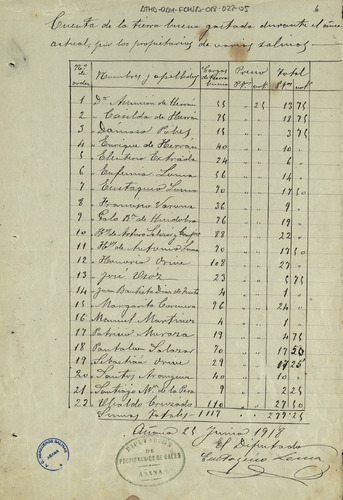 ATHA-DAH-FCHISA-018-022-05
6
Cuenta de la tierra buena gastada durante el año
actual, por los propietarios de varias salinas.
Nº de orden Nombres y apellidos Cargas de tierra buena Precio Ptas cts Total Ptas cts
1 Dª Asunción de Herrán 55 " 25 13 75
2 " Casilda de Herrán 75 " " 18 75
3 " Dámaso Pobes 15 " " 3 75
4 " Enrique de Herrán 40 " " 10 "
5 " Eleuterio Estrada 24 " " 6 "
6 " Eufemia Loma 56 " " 14 "
7 " Eustaquio Loma 70 " " 17 50
8 " Francisco Varona 36 " " 9 "
9 " Polo Bª de Huidobro 76 " " 19 "
10 " Hºs de Arturo Salazar y 88 " " 22 "
11 " Hºs de Antonio Loma 70 " " 17 50
12 " Honoria Orive 108 " " 27 "
13 " José Usoz 23 " " 5 75
14 " Juan Bautista Diaz de 4 " " 1 "
15 " Margarita 96 " " 24 "
16 " Manuel Martinez 4 " " 1 "
17 " Patricio 19 " " 4 75
18 " Pantaleon Salazar 70 " " 17 50
19 " Sebastian Orive 29 " " 7 25
20 " Santos Arongua 40 " " 10 "
21 " Santiago Mº de la Pera 9 " " 2 25
22 " Ubaldo Cruzado 110 " " 27 50
Sumas Totales 1117 279 25
Añana 25 Junio 1918
El Diputado
Eustaquio Loma
DIPUTACION DE PROPIETARIOS DE SALES
AÑANA